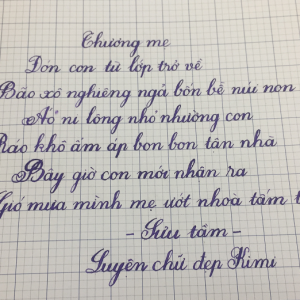 Thương mẹ
Đón con từ lớp trở về
Bão xô nghiêng ngả bốn bề núi non
Áo ni lông nhỏ nhường con
Ráo khô ấm áp bon bon tận nhà
Bây giờ con mới nhận ra
Gió mưa mình mẹ ướt nhoà tấm t
- Sưu tầm -
Luyện chữ đẹp Kimi